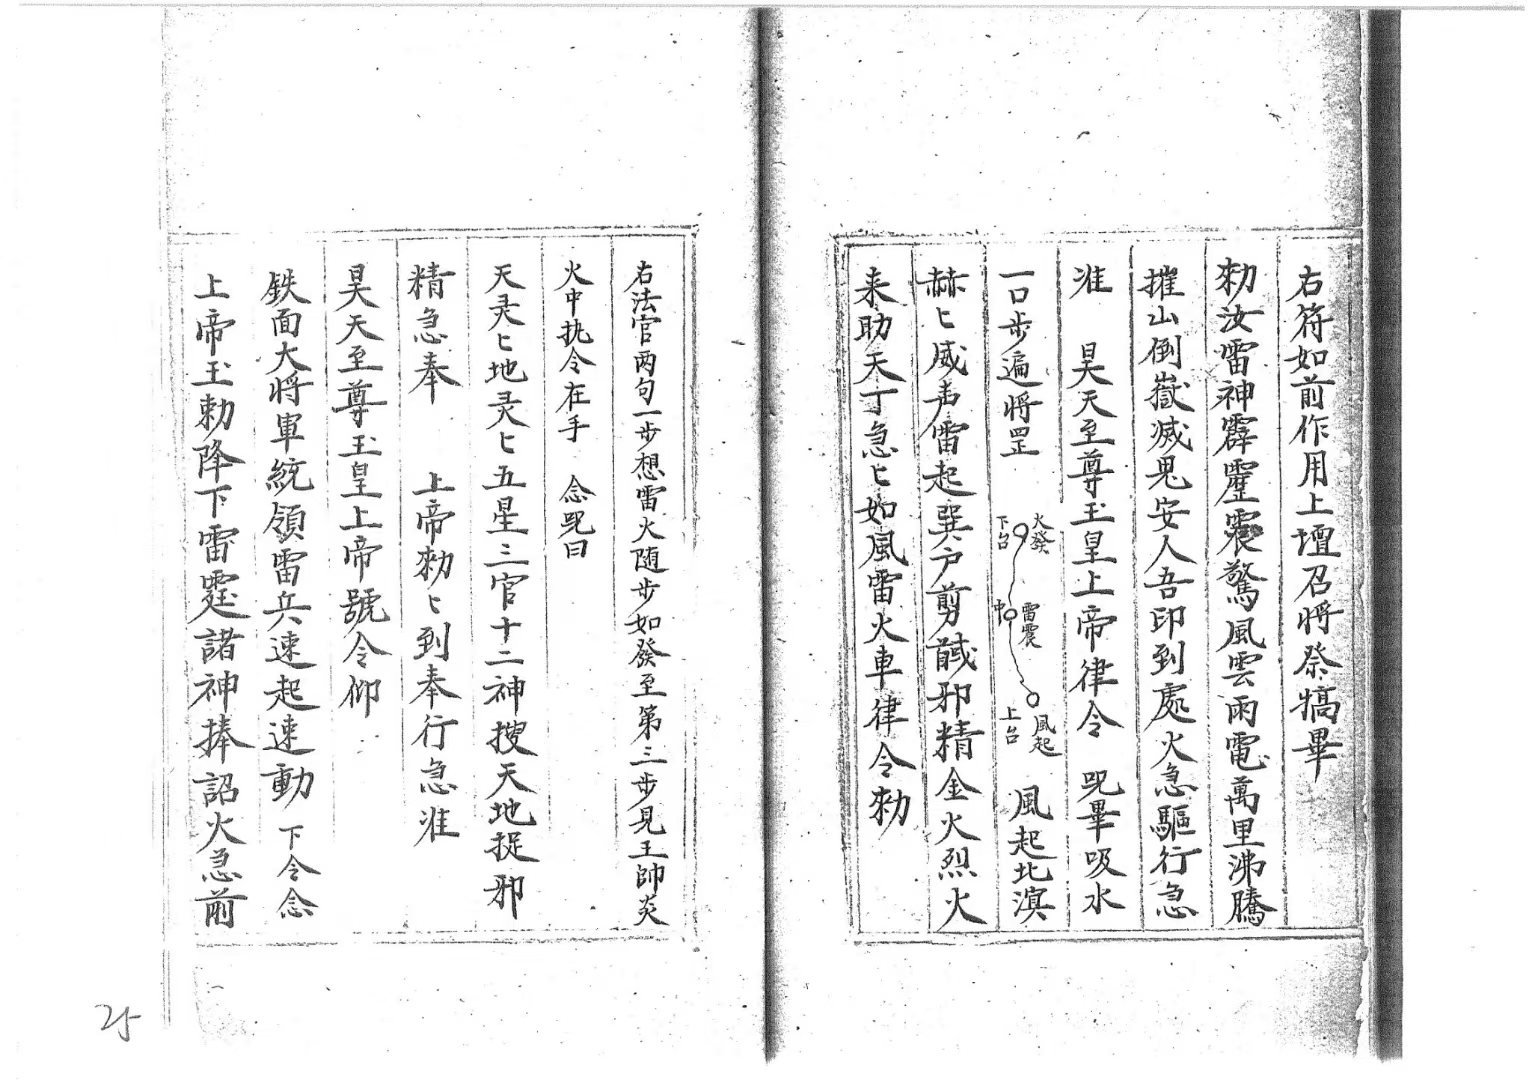 右符如前作用上壇召將祭犒畢
勑汝雷神霹靂震驚風雲雨電萬里沸騰
摧山倒嶽滅鬼安人吾印到處火急驅行急
准 昊天至尊玉皇上帝律令 咒畢吸水
一口步遍將罡
火發
下台
雷震
中
風起
上台
風起北溟
赫匕威声雷起巽户剪馘邪精金火烈火
来助天丁急匕如風雷火車律令勑
右法官两句一步想雷火随步如發至第三步見王帥炎
火中执令在手 念咒曰
天灵匕地灵匕五星三官十二神搜天地捉邪
精急奉 上帝勑匕到奉行急准
昊天至尊玉皇上帝號令仰
鉄面大将軍統領雷兵速起速動 下令念
上帝玉勅降下雷霆諸神捧詔火急前
25